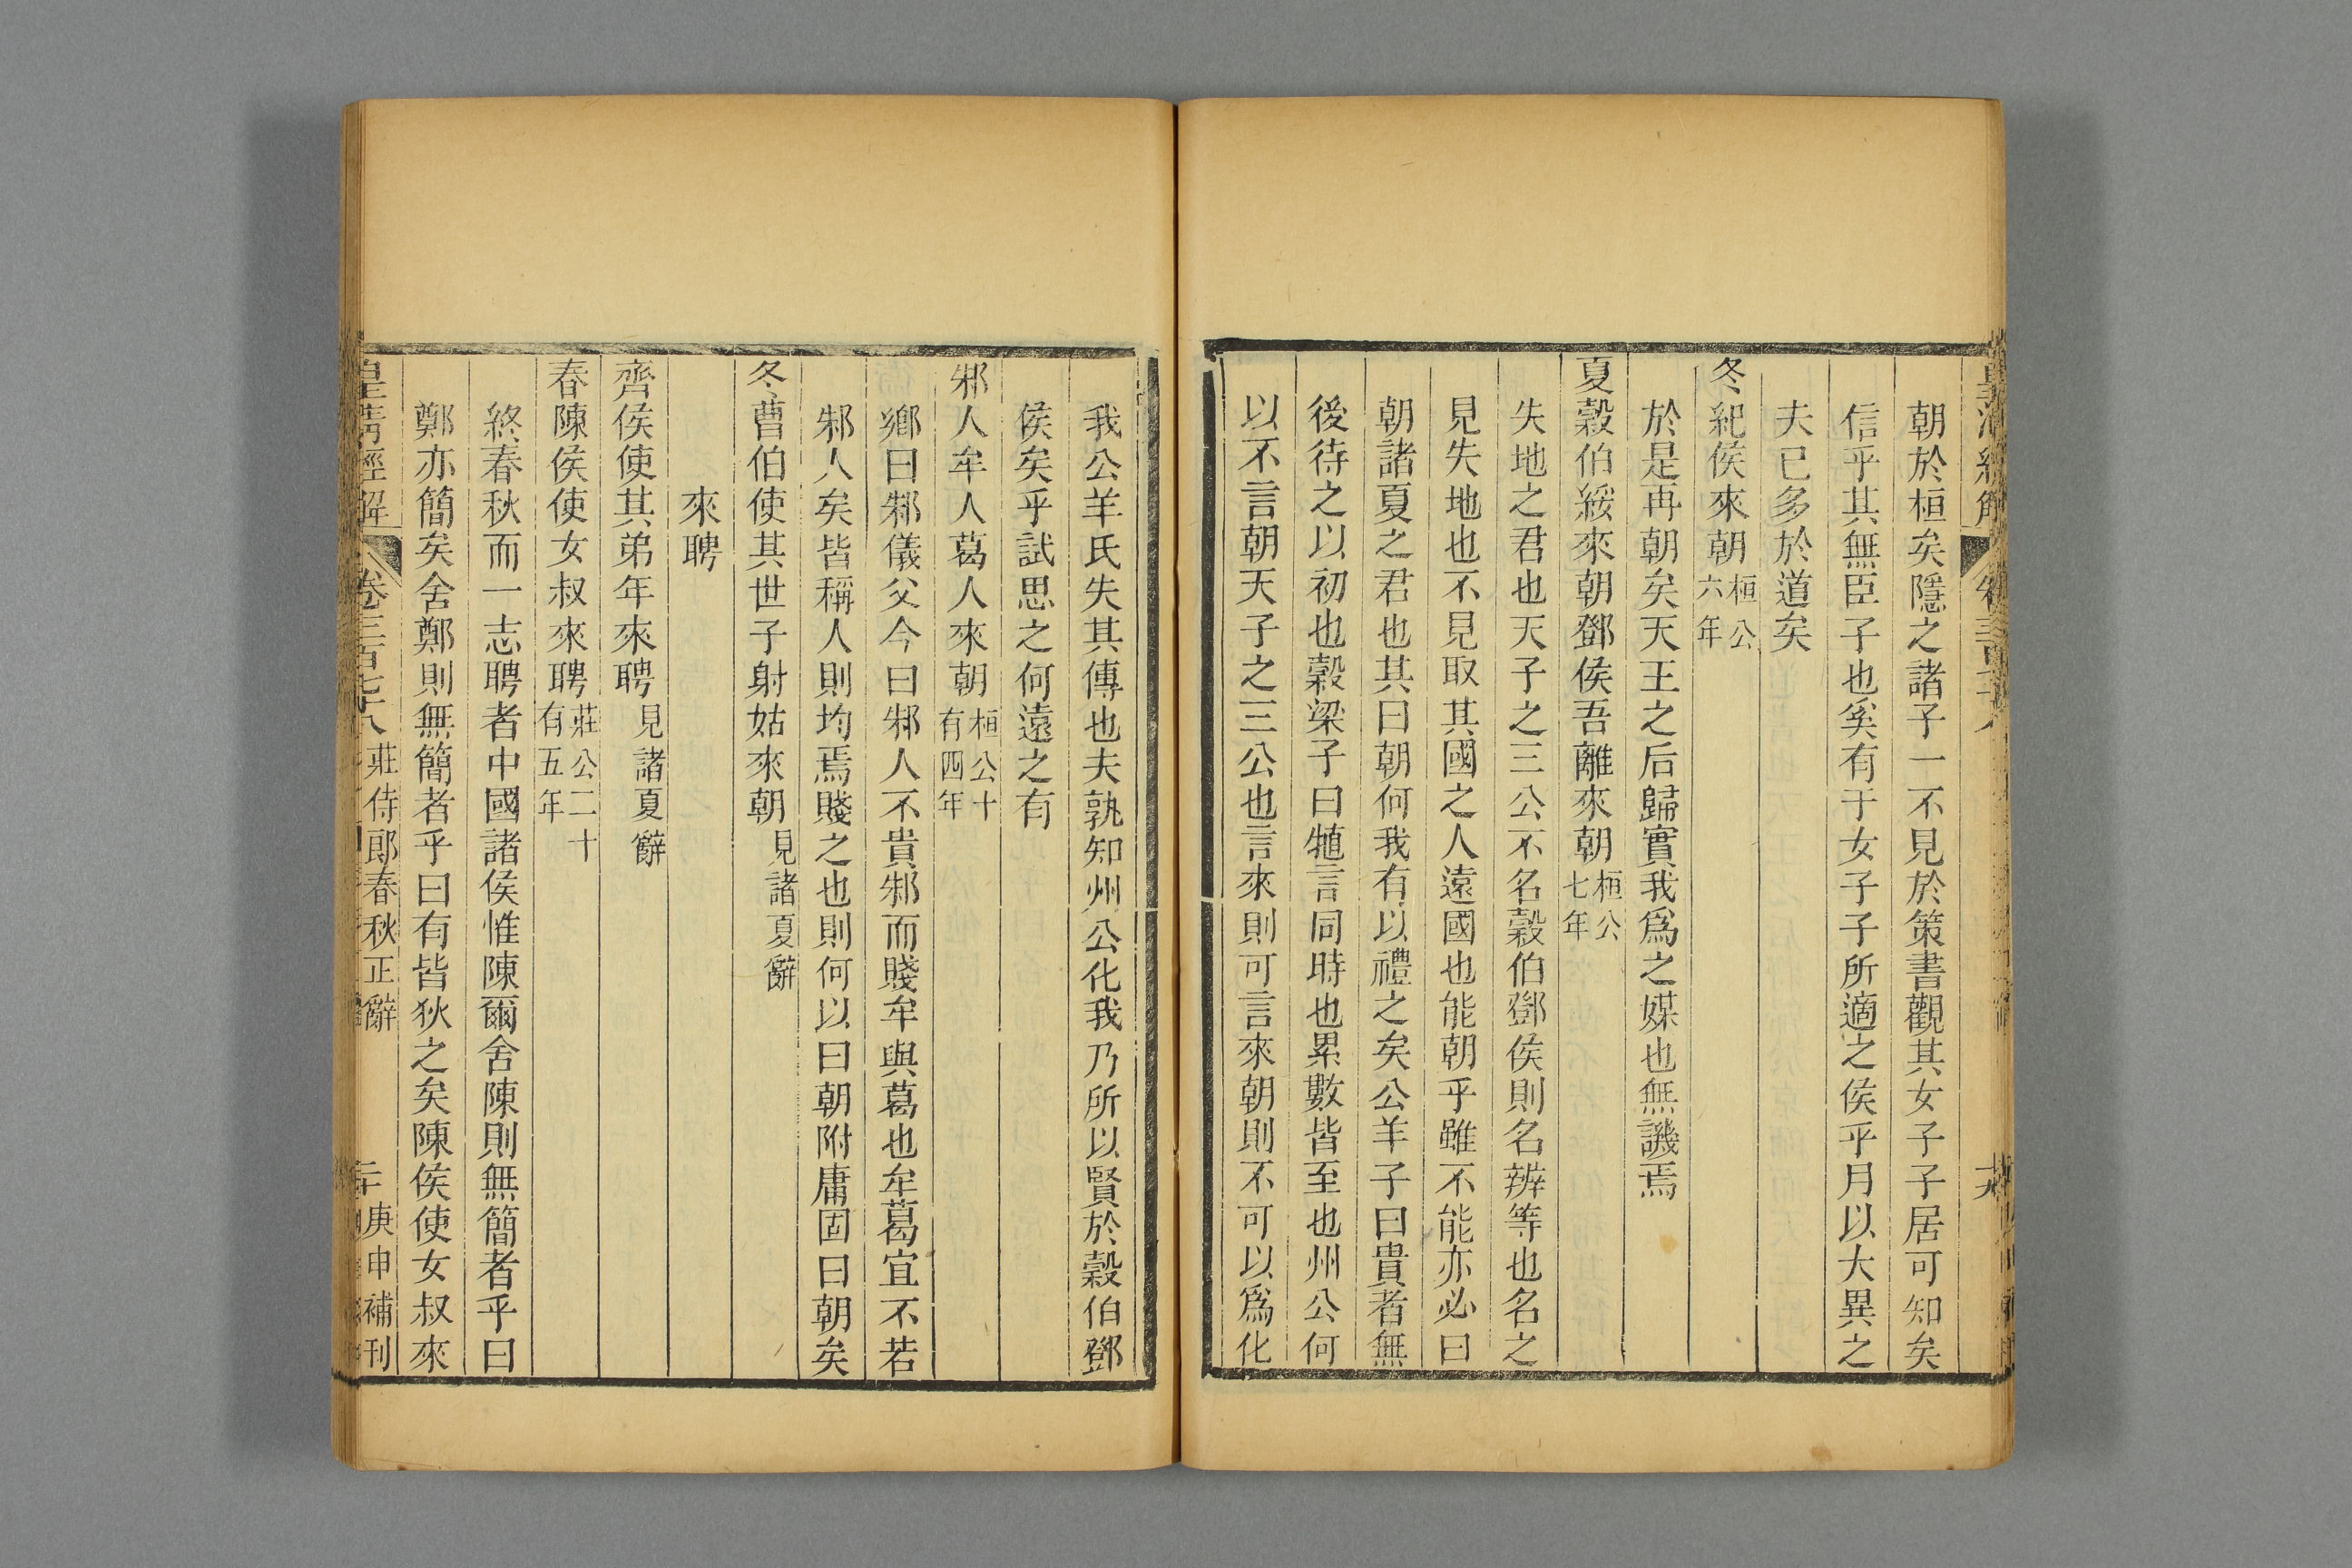 皇清經解 卷三百七十八 十九
朝於桓矣隱之諸子一不見於策書觀其女子子居可知矣
信乎其無臣子也矣有于女子子所適之侯乎月以大異之
夫已多於道矣
冬紀侯來朝桓公六年
於是再朝矣天王之后歸實我爲之媒也無譏焉
夏穀伯綏來朝鄧侯吾離來朝桓公七年
失地之君也天子之三公不名穀伯鄧侯則名辨等也名之
見失地也不見取其國之人遠國也能朝乎雖不能亦必曰
朝諸夏之君也其曰朝何我有以禮之矣公羊子曰貴者無
後待之以初也穀梁子曰㹠言同時也累數皆至也州公何
以不言朝天子之三公也言來則可言來朝則不可以爲化
我公羊氏失其傳也夫孰知州公化我乃所以賢於穀伯鄧
侯矣乎試思之何遠之有
邾人牟人葛人來朝桓公十有四年
鄉曰邾儀父今曰邾人不貴邾而賤牟與葛也牟葛宜不若
邾人矣皆稱人則均焉賤之也則何以曰朝附庸固曰朝矣
冬曹伯使其世子射姑來朝見諸夏辭
來聘
齊侯使其弟年來聘見諸夏辭
春陳侯使女叔來聘莊公二十有五年
終春秋而一志聘者中國諸侯惟陳爾舍陳則無簡者乎曰
鄭亦簡矣舍鄭則無簡者乎曰有皆狄之矣陳侯使女叔來
皇清經解 卷三百七十八 莊侍郎春秋正辭 二十 庚申補刊